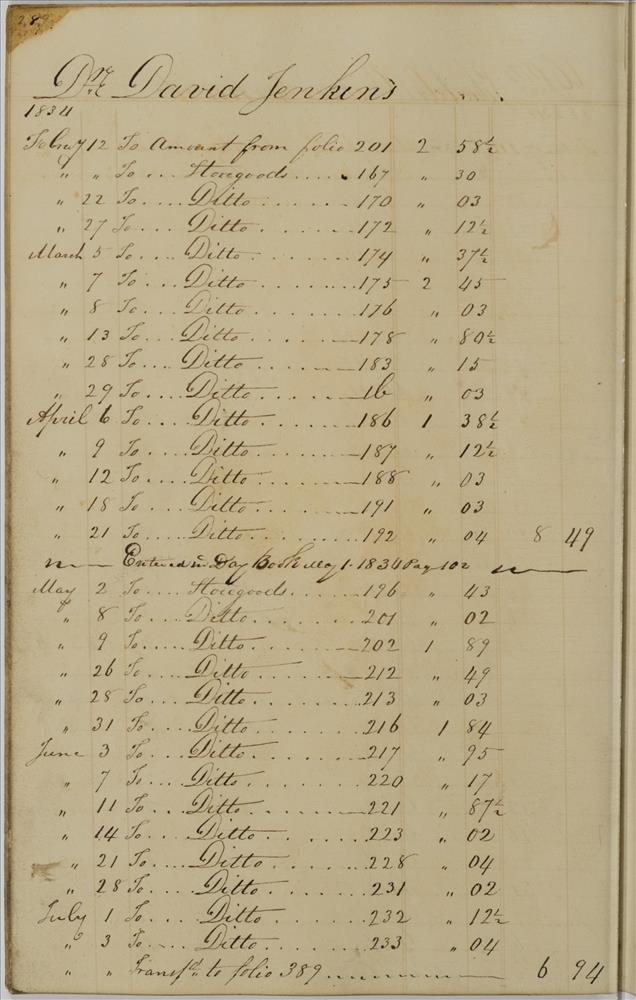 289
Dr. David Jenkins
1834
Febru'y 12 To Amount from folio 201 2 58½
" " To ... Storegoods ..... 167 " 30
" 22 To .... Ditto ....... 170 " 03
" 27 To .... Ditto ....... 172 " 12½
March 5 To .... Ditto ....... 174 " 37½
" 7 To .... Ditto ....... 175 2 45
" 8 To .... Ditto ....... 176 " 03
" 13 To .... Ditto ....... 178 " 80½
" 28 To .... Ditto ....... 183 " 15
" 29 To .... Ditto ....... Ib " 03
April 6 To .... Ditto ....... 186 1 38½
" 9 To .... Ditto ....... 187 " 12½
" 12 To .... Ditto ....... 188 " 03
" 18 To .... Ditto ....... 191 " 03
" 21 To .... Ditto ....... 192 " 04 8 49
Entered in Day Book May 1. 1834 Pag 102
May 2 To .... Storegoods ..... 196 " 43
" 8 To .... Ditto ....... 201 " 02
" 9 To .... Ditto ....... 202 1 89
" 26 To .... Ditto ....... 212 " 49
" 28 To .... Ditto ....... 213 " 03
" 31 To .... Ditto ....... 216 1 84
June 3 To .... Ditto ....... 217 " 95
" 7 To .... Ditto ....... 220 " 17
" 11 To .... Ditto ....... 221 " 87½
" 14 To .... Ditto ....... 223 " 02
" 21 To .... Ditto ....... 228 " 04
" 28 To .... Ditto ....... 231 " 02
July 1 To .... Ditto ....... 232 " 12½
" 3 To .... Ditto ....... 233 " 04
" " Transfd. to folio 389 6 94